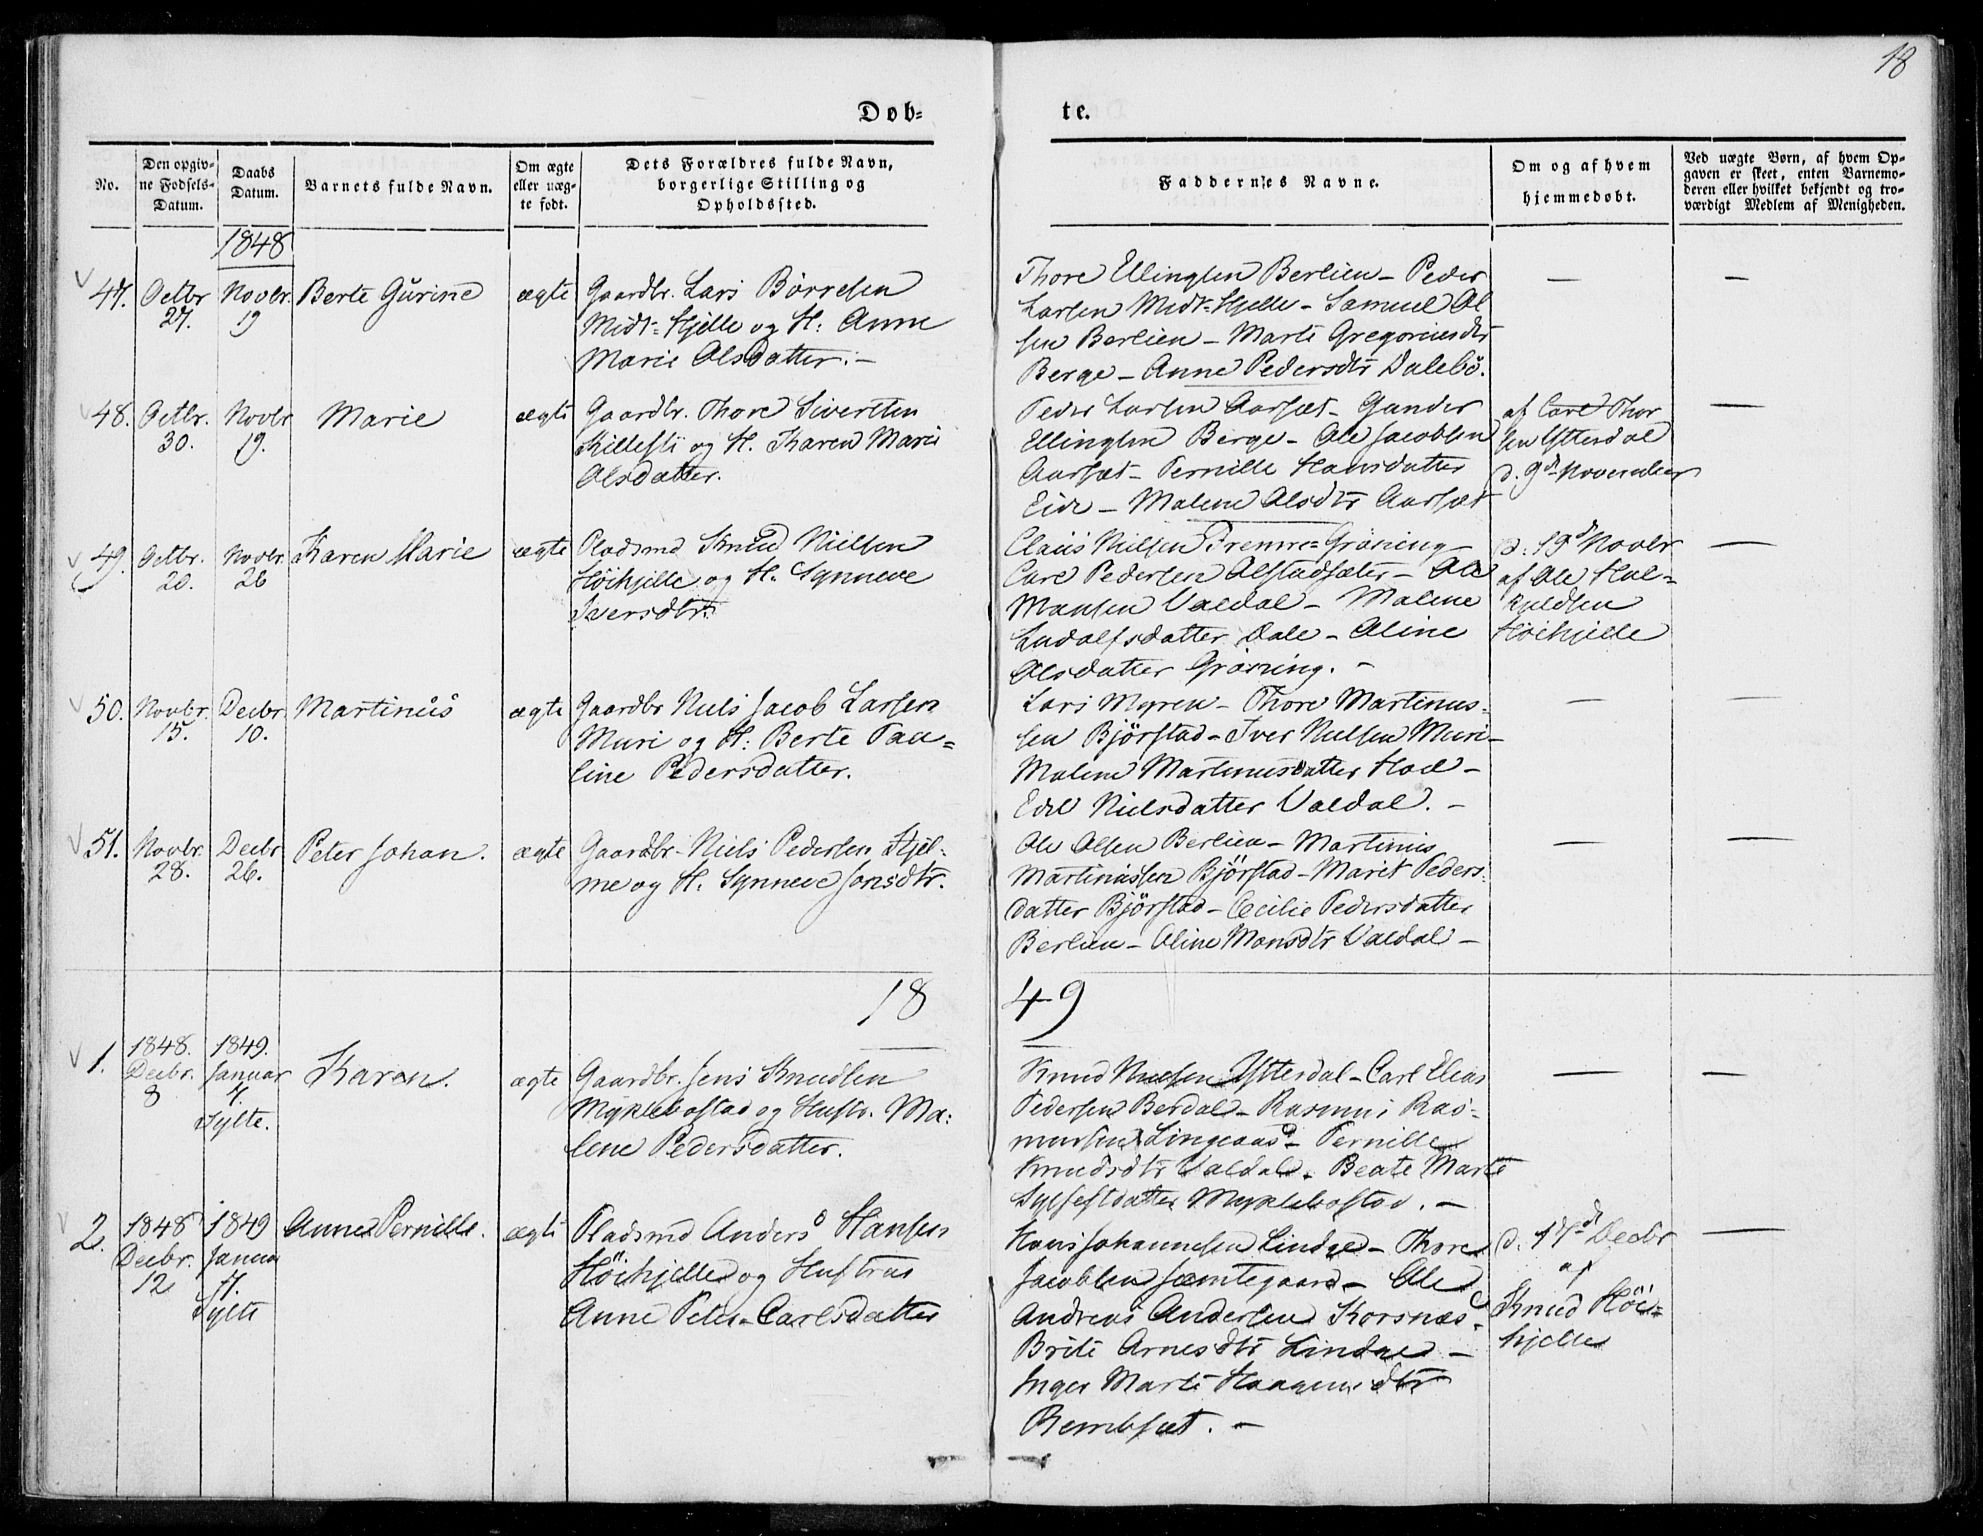 18
Døb=
te.
No.
Den opgiv=
ne Fødsels=
Datum.
Daabs
Datum.
Barnets fulde Navn.
Om ægte
eller uæg=
te født.
Dets Forældres fulde Navn,
borgerlige Stilling og
Opholdssted.
Faddernes Navne.
Om og af hvem
hjemmedøbt.
Ved uægte Børn, af hvem Op=
gaven er skeet, enten Barnemo=
deren eller hvilket bekjendt og tro=
værdigt Medlem af Menigheden.
1848
47. Octbr 27. Novbr. 19 Berte Gurine ægte
Gaardbr. Lars Börresen
Midt=Hjelle og H: Anne
Marie Olsdatter. –
Thore Ellingsen Berlien – Peder
Larsen Midt=Hjelle – Samuel Ol
sen Berlien – Marte Gregoriusdtr
Berge – Anne Pedersdtr Dalebö.
–
–
48. Octbr. 30. Novbr 19. Marie ægte
Gaardbr. Thore Sivertsen
Killesti og H. Karen Marie
Olsdatter.
Peder Larsen Aarsæt – Gunder
Ellingsen Berge – Ole Jacobsen
Aarsæt – Pernille Hansdatter
Eide – Malene Olsdtr Aarsæt
af Carl Thor
sen Ytterdal
d. 9de November
–
49. Octbr. 20. Novbr. 26 Karen Marie ægte
Pladsmd Knud Nielsen
Höihjelle og H. Synneve
Iversdtr.
Claus Nielsen Fremre=Gröning
Carl Pedersen Alstadsæter – Ole
Monsen Valdal – Malene
Ludolfsdatter Dale – Oline
Olsdatter Gröning. –
d. 19de Novbr
af Ole Hal=
kyldsen
Höihjelle
–
50. Novbr. 15. Decbr 10. Martinus ægte
Gaardbr Niels Jacob Larsen
Muri og H: Berte Pau=
line Pedersdatter.
Lars Myren – Thore Martinus=
sen Björstad – Iver Nielsen Muri –
Malene Martinusdatter Hoel –
Edel Nielsdatter Valdal. –
–
–
51. Novbr. 28. Decbr 26. Peter Johan. ægte
Gaardbr. Niels Pedersen Hjel=
me og H. Synneve Jonsdtr.
Ole Olsen Berlien – Martinus
Martinussen Björstad – Marit Peders=
datter Björstad – Cecilie Pedersdatter
Berlien – Oline Monsdtr Valdal –
–
–
18
49
1. 1848. Decbr. 8 1849. Januar 7. Sylte. Karen. ægte
Gaardbr. Jens Knudsen
Myklebostad og Hustr. Ma=
lene Pedersdatter.
Knud Nielsen Ytterdal – Carl Elias
Pedersen Berdal – Rasmus Ras=
mussen Lingaas – Pernille
Knudsdtr Valdal – Beate Marte
Sylfestdatter Myklebostad. –
–
–
2. 1848 Decbr. 12 1849 Januar 7. Sylte Anne Pernille. ægte
Pladsmd Anders Hansen
Höihjelle og Hustrue
Anne Peter=Carlsdatter
Hans Johannesen Lindge – Thore
Jacobsen Jemtegaard – Ole
Andreas Andersen Korsnæs –
Brite Arnesdtr Lindge –
Inger Marte Haagensdtr
Rembsæt. –
d. 17de Decbr
af
Knud Höi=
hjelle
–